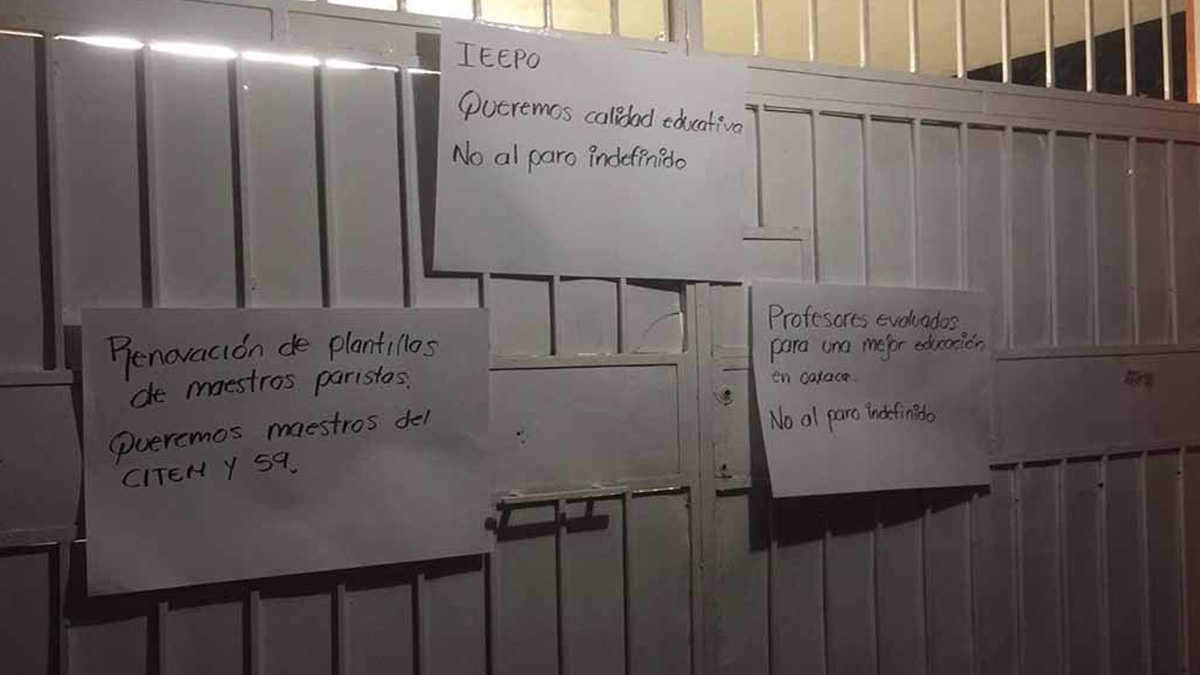 IEEPO
Queremos calidad educativa
No al paro indefinido
Renovación de plantillas
de maestros paristas.
Queremos maestros del
CITEM Y 59.
Profesores evaluados
para una mejor educación
en oaxaca.
No al paro indefinido